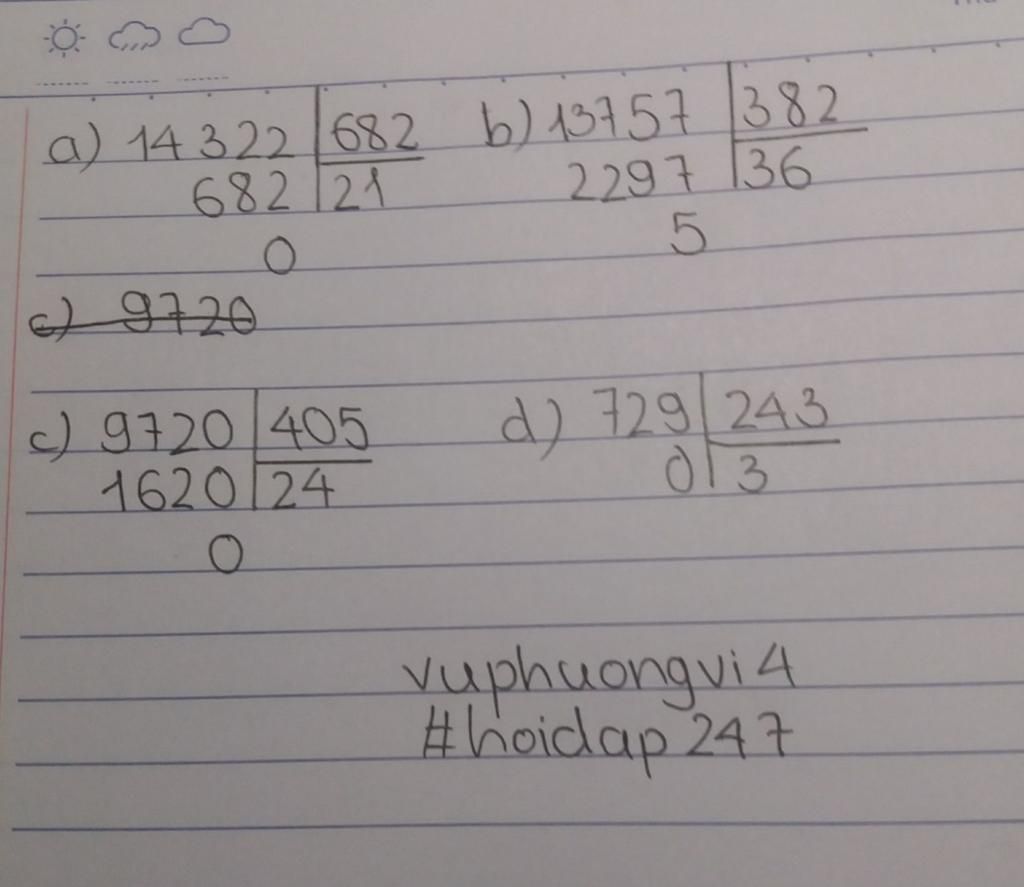 a) 14322 682 b) 13757 382
682 21 2297 36
0 5
c) 9720
c) 9720 405 d) 729 243
1620 24 0 3
0
vuphuongvi4
#hoidap247